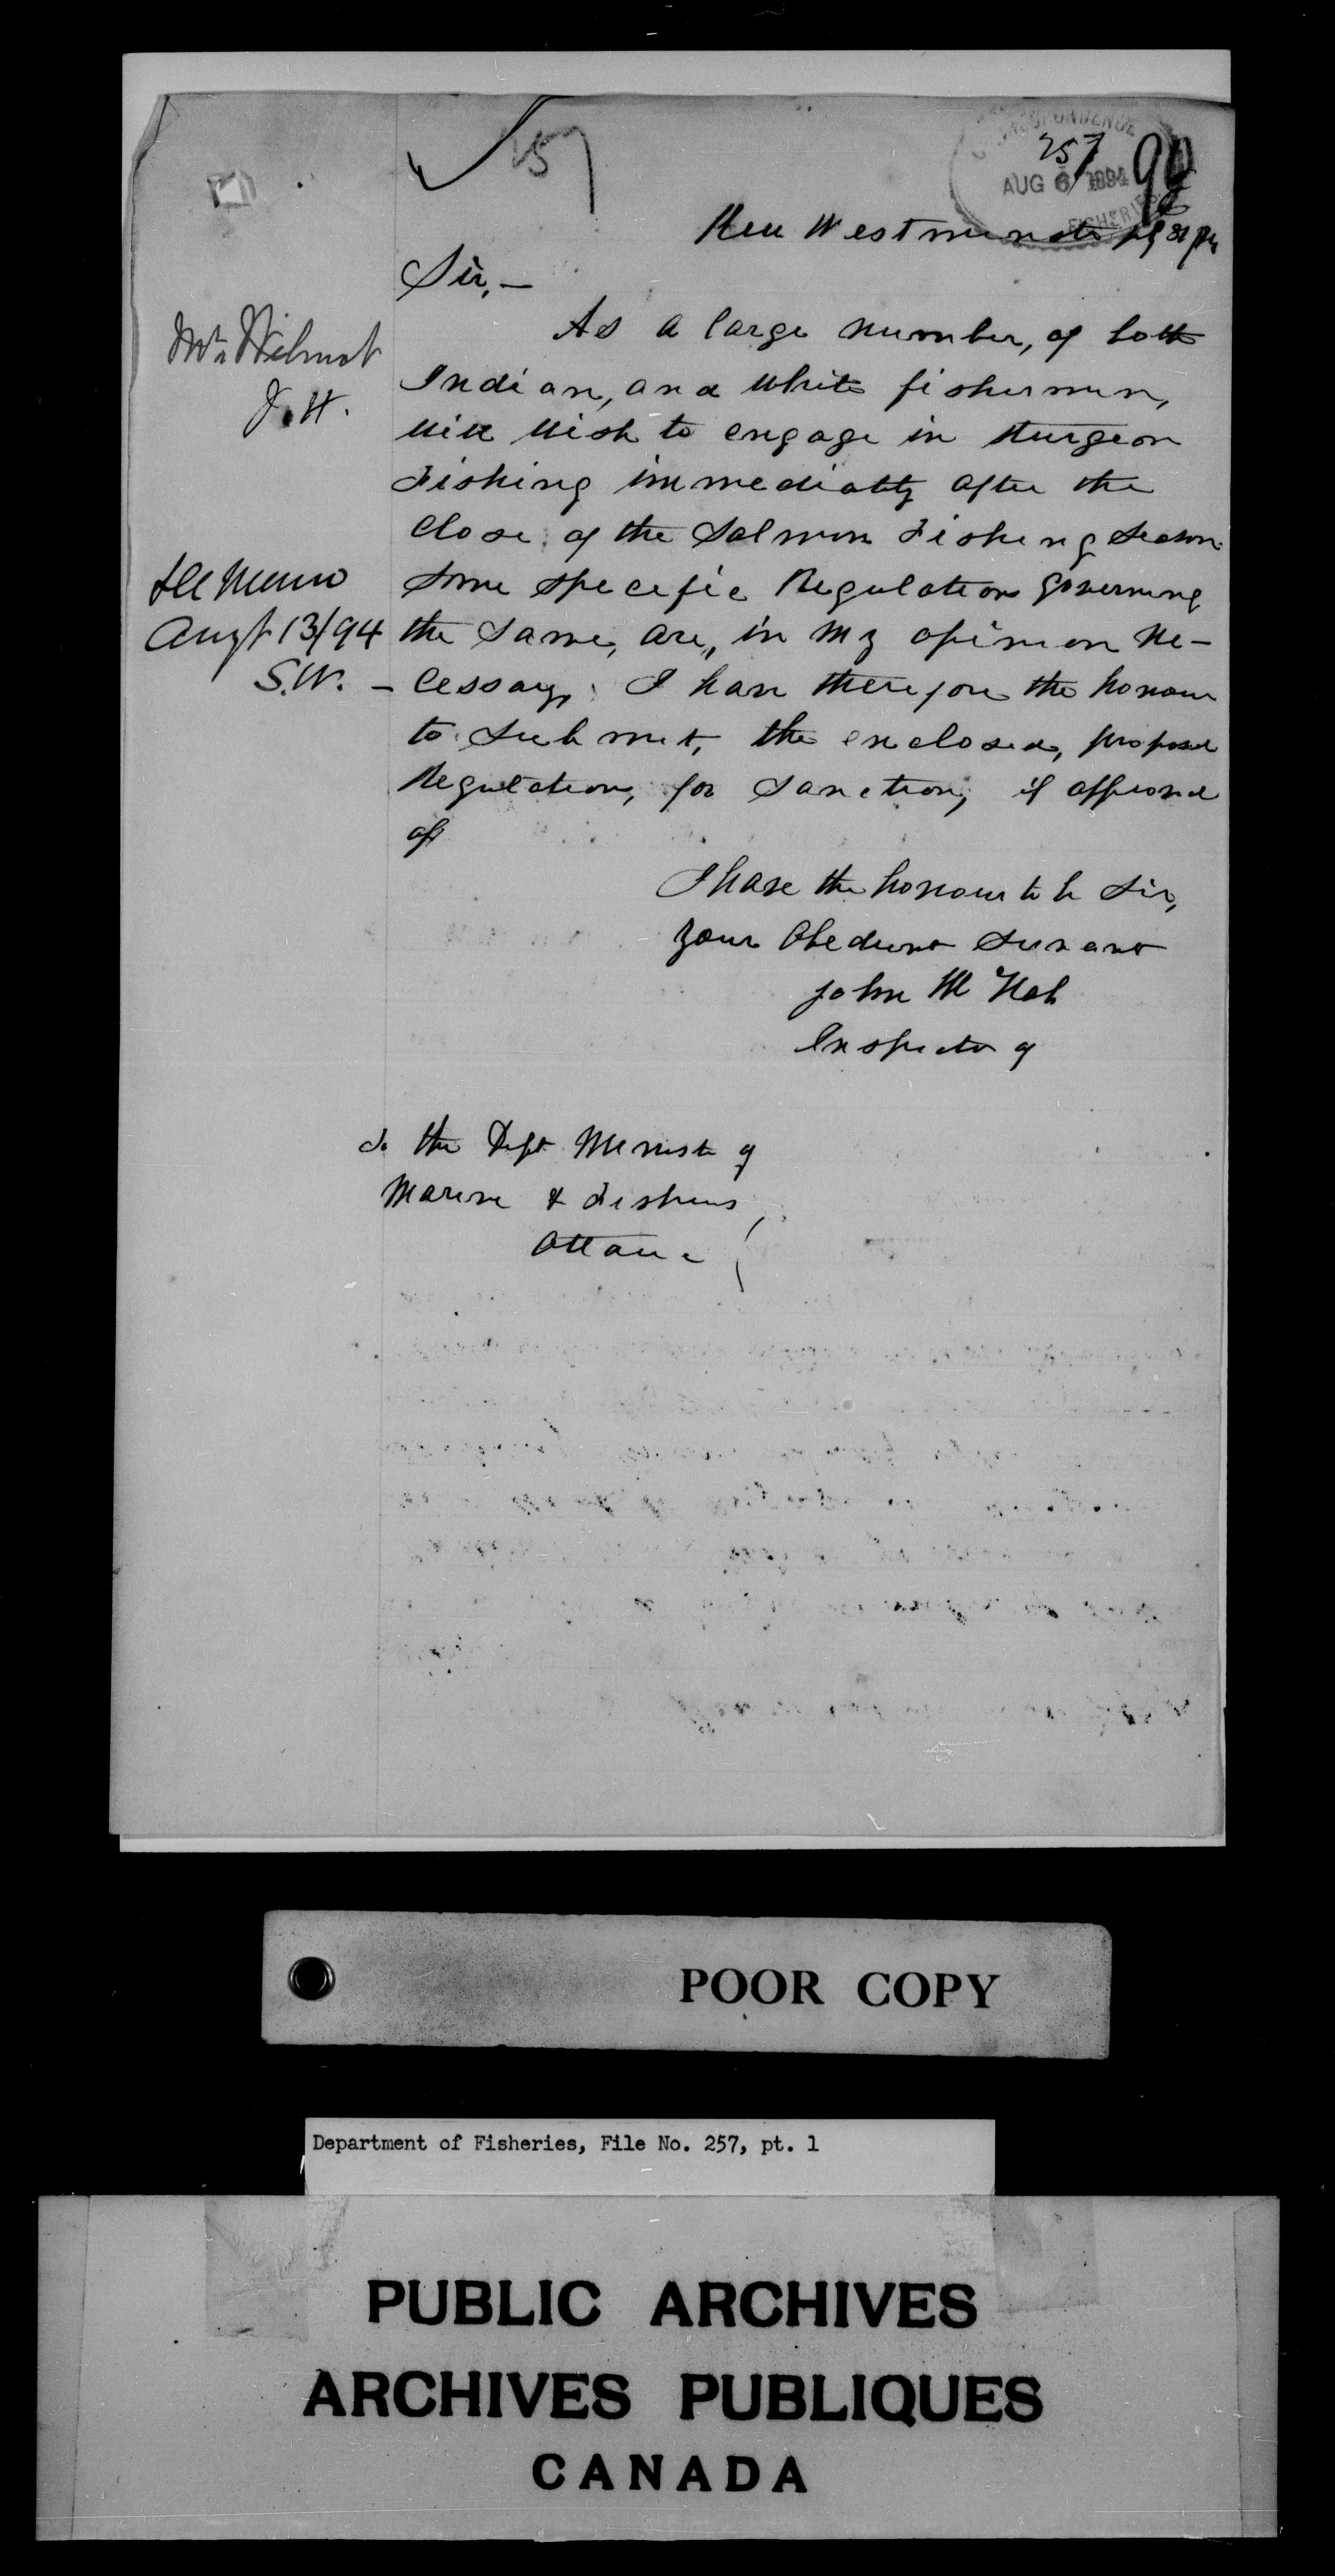 257
CORRESPONDENCE
257
AUG 6 1894
FISHERIES
90
New Westminster
Sir,—
As a large number, of both
Indian, and white fishermen,
will wish to engage in sturgeon
Fishing immediatly after the
Close of the Salmon Fishing Season
some specific Regulations governing
the same, are, in my opinion ne-
cessary. I have therefore the honour
to submit, the enclosed, proposed
Regulations, for sanction, if approved
of
I have the honour to be Sir,
your Obedient Servant
John McNab
Inspector of
To the Dept Minister of
Marine & Fisheries,
Ottawa
Mr. Wilmot
J.H.
See Memo
Augt 13/94
S.W.
POOR COPY
Department of Fisheries, File No. 257, pt. 1
PUBLIC ARCHIVES
ARCHIVES PUBLIQUES
CANADA